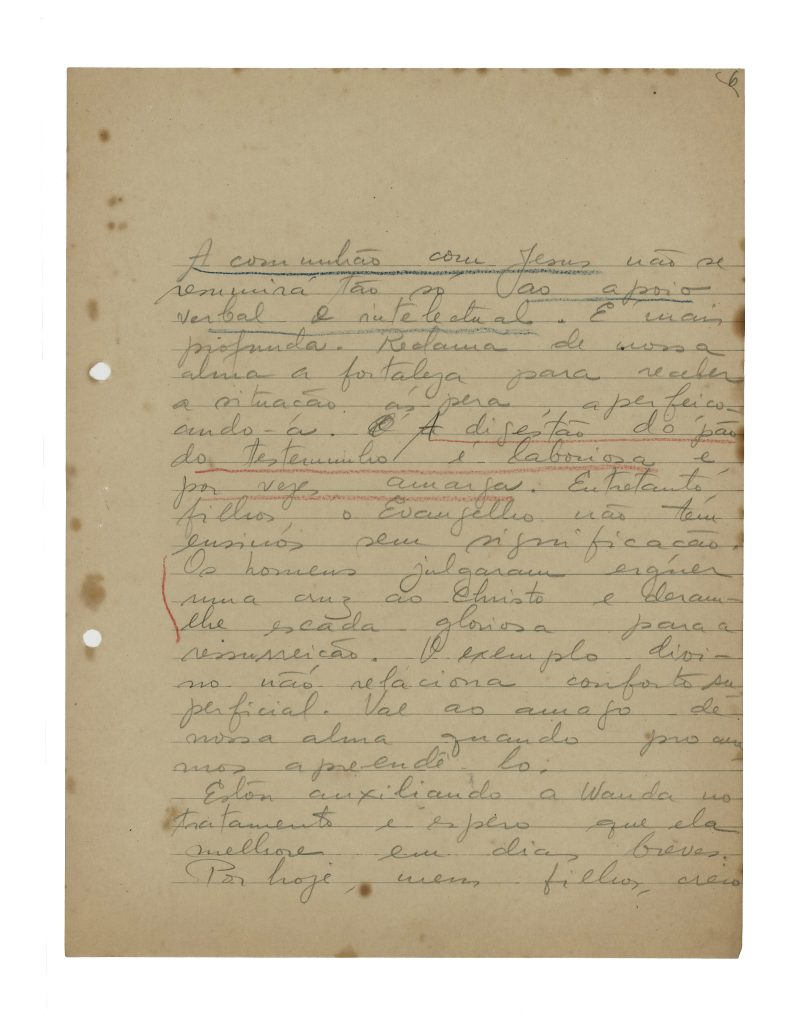 6
A comunhão com Jesus não se
resumirá tão só ao apoio
verbal e intelectual. É mais
profunda. Reclama de nossa
alma a fortaleza para receber
a situação áspera, aperfeiço-
ando-a. A digestão do pão
do testemunho é laboriosa e
por vezes amarga. Entretanto,
filhos, o Evangelho não tem
ensinos sem significação.
Os homens julgaram erguer
uma cruz ao Christo e deram-
lhe escada gloriosa para a
ressurreição. O exemplo divi-
no não relaciona conforto su-
perficial. Vae ao amago de
nossa alma quando
mos apreendê-lo.
Estou auxiliando a Wanda no
tratamento e espero que ela
melhore em dias breves.
Por hoje, meus filhos, creio